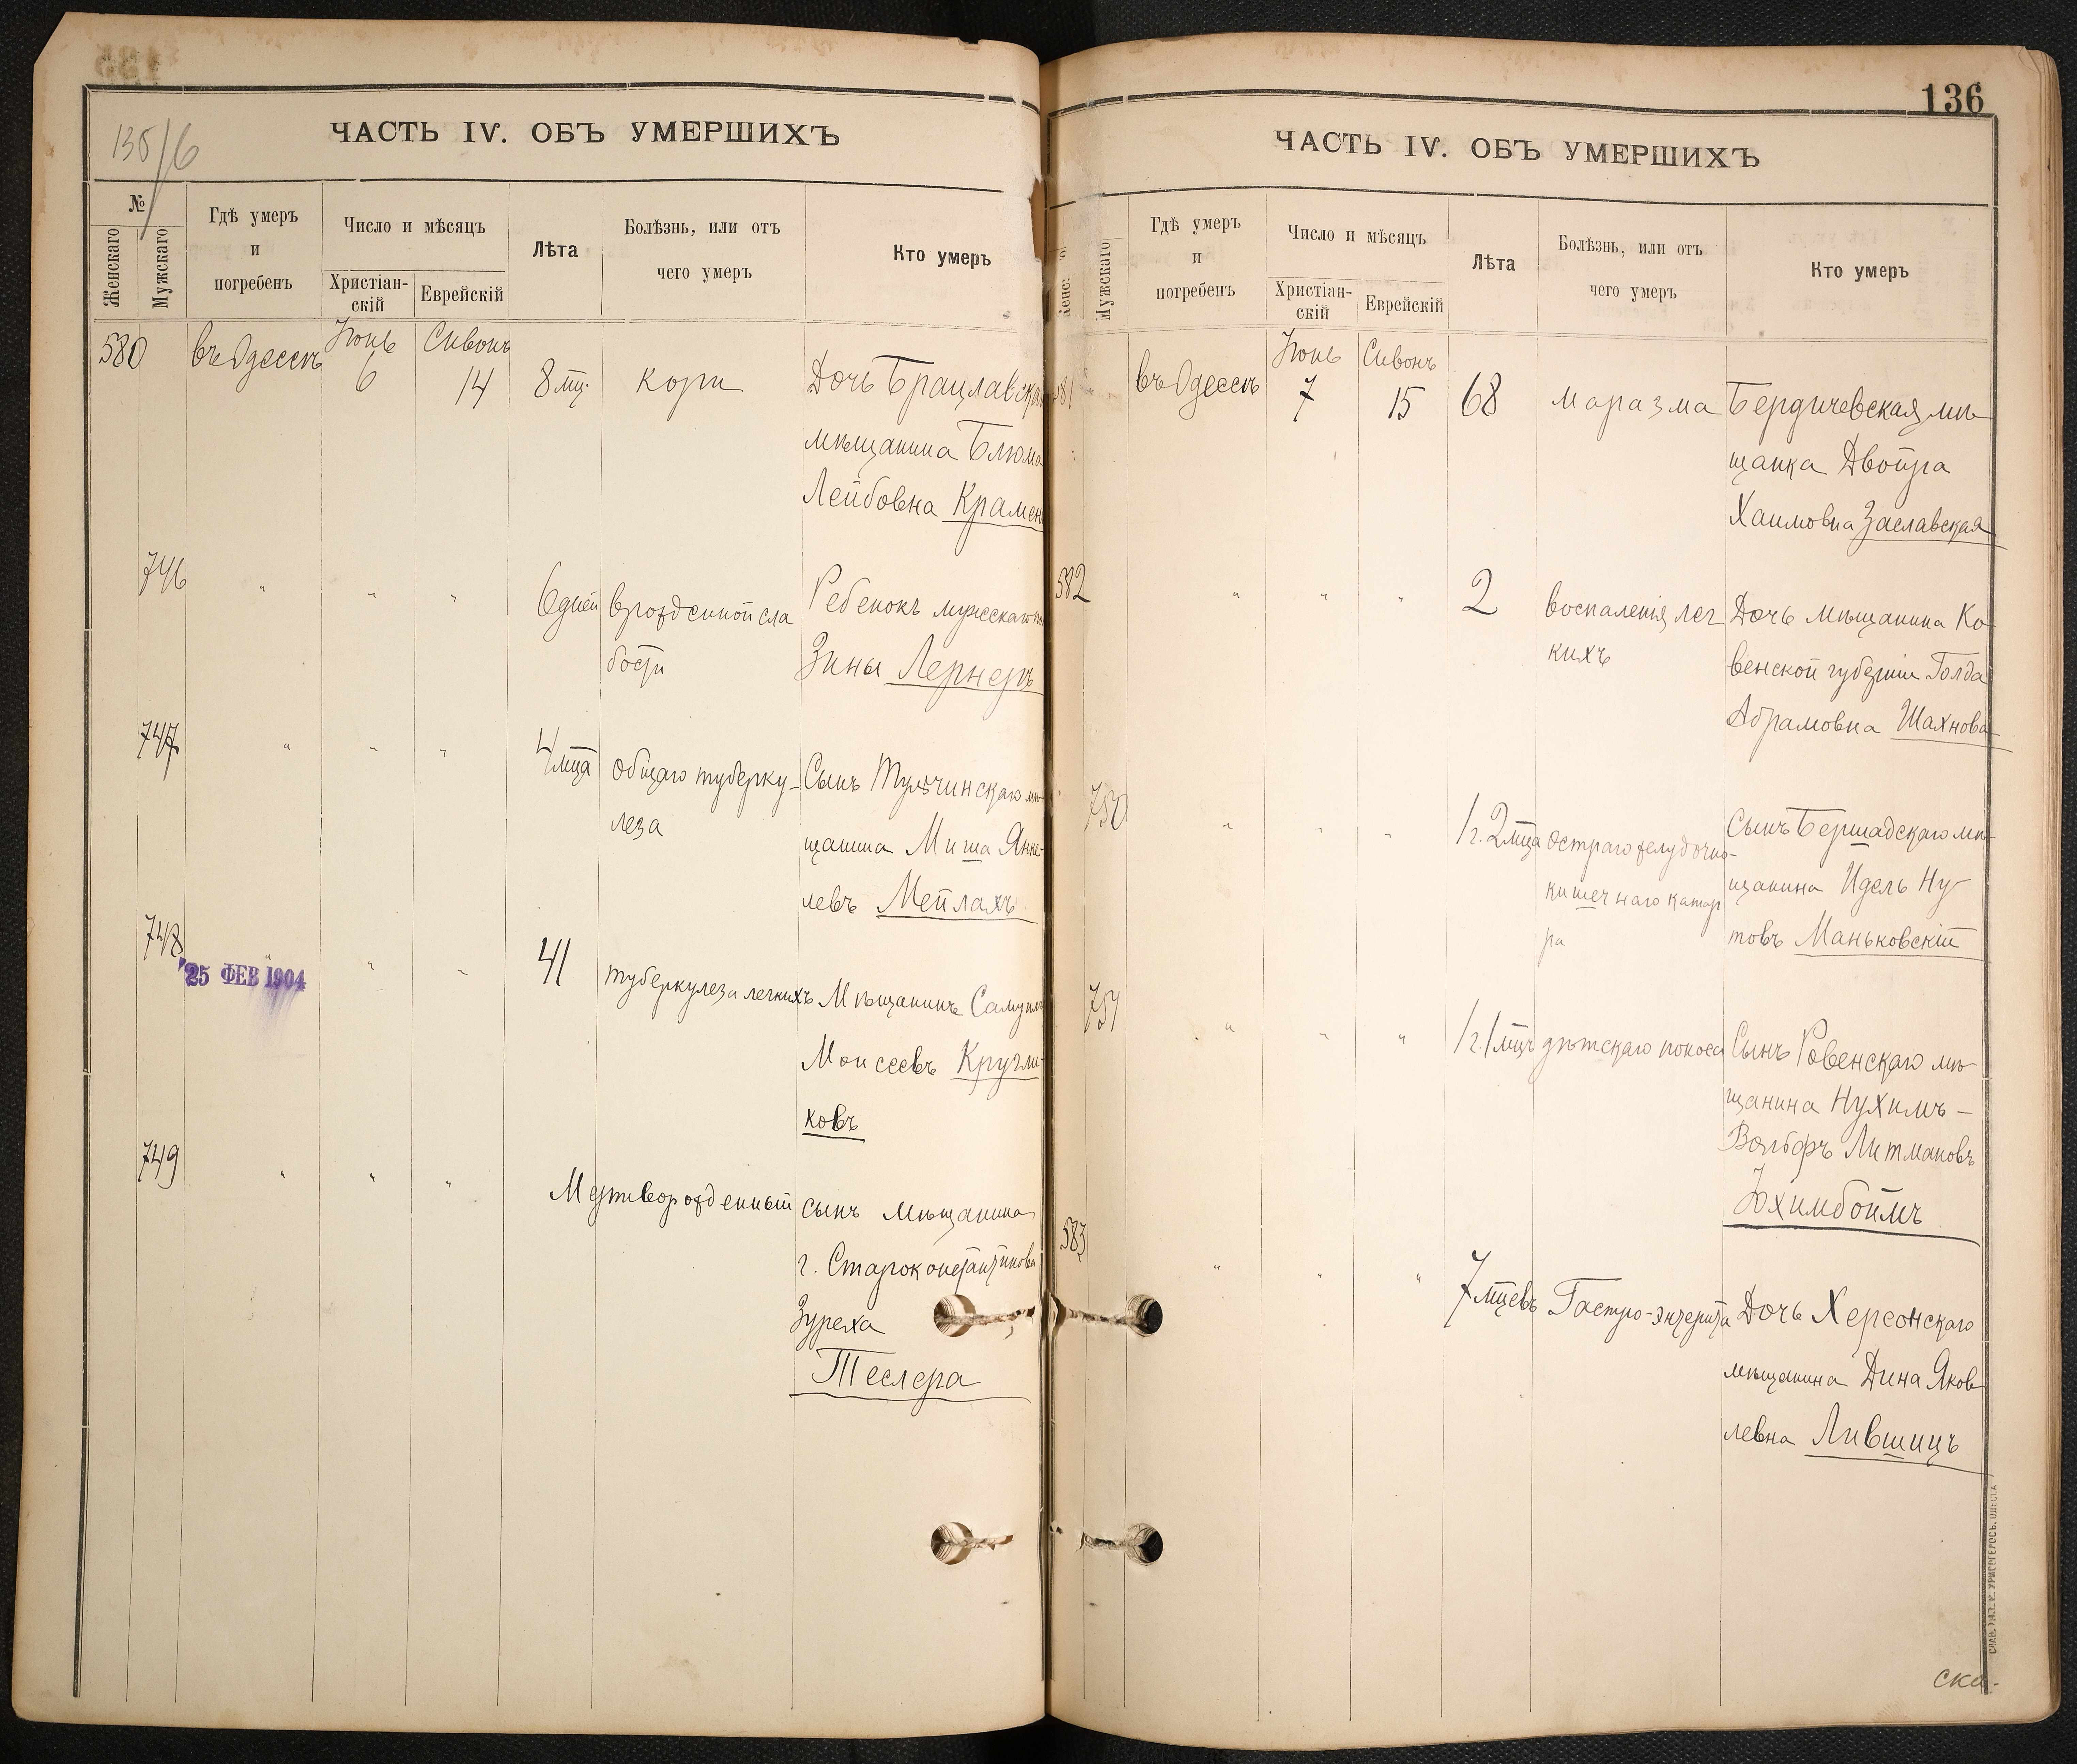 135/6
ЧАСТЬ IV. ОБЪ УМЕРШИХЪ
№
Женскаго
Мужскаго
Гдѣ умеръ
и
погребенъ
Число и мѣсяцъ
Христіан-
скій
Еврейскій
Лѣта
Болѣзнь, или отъ
чего умеръ
Кто умеръ
580 въ Одессѣ Іюнь 6 Сивонъ 14 8 мц. кори Дочь Брацлавска
мѣщанина Блюма
Лейбовна Крамен
746 " " " 6 дней врожденной сла
бости
Ребенокъ мужскаго
Зины Лернеръ
747 " " " 4 мца общаго туберку-
леза
Сынъ Тульчинскаго мѣ-
щанина Миша Янке-
левъ Мейлахъ
748 " " " 41 туберкулеза легкихъ Мѣщанинъ Самуилъ
25 ФЕВ 1904
Моисеевъ Кругли-
ковъ
749 " " " Мертворожденный сынъ мѣщанина
г. Староконстантинова
Зуреха
Теслера
136
ЧАСТЬ IV. ОБЪ УМЕРШИХЪ
Мужскаго
Гдѣ умеръ
и
погребенъ
Число и мѣсяцъ
Христіан-
скій
Еврейскій
Лѣта
Болѣзнь, или отъ
чего умеръ
Кто умеръ
581 въ Одессѣ Іюнь 7 Сивонъ 15 68 маразма Бердичевская мѣ-
щанка Двойра
Хаимовна Заславская
582 " " " 2 воспаленія лег
кихъ
Дочь мѣщанина Ко-
венской губерніи Голда
Абрамовна Шахнова
750 " " " 1 г. 2 мца остраго желудочно-
кишечнаго катар
ра
Сынъ Бершадскаго мѣ-
щанина Идель Ну-
товъ Маньковскій
751 " " " 1 г. 1 мцъ дѣтскаго поноса Сынъ Ровенскаго мѣ-
щанина Нухимъ-
Вольфъ Литмановъ
Юхимбоймъ
583 " " " 7 мцевъ Гастро-энтерита Дочь Херсонскаго
мѣщанина Дина Яков
левна Лившицъ
ска-